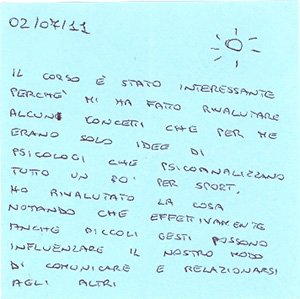 02/07/11
IL CORSO È STATO INTERESSANTE
PERCHE' MI HA FATTO RIVALUTARE
ALCUNI CONCETTI CHE PER ME
ERANO SOLO IDEE DI
PSICOLOGI CHE PSICOANALIZZANO
TUTTO UN PO' PER SPORT.
HO RIVALUTATO LA COSA
NOTANDO CHE EFFETTIVAMENTE
ANCHE PICCOLI GESTI POSSONO
INFLUENZARE IL NOSTRO MODO
DI COMUNICARE E RELAZIONARSI
AGLI ALTRI